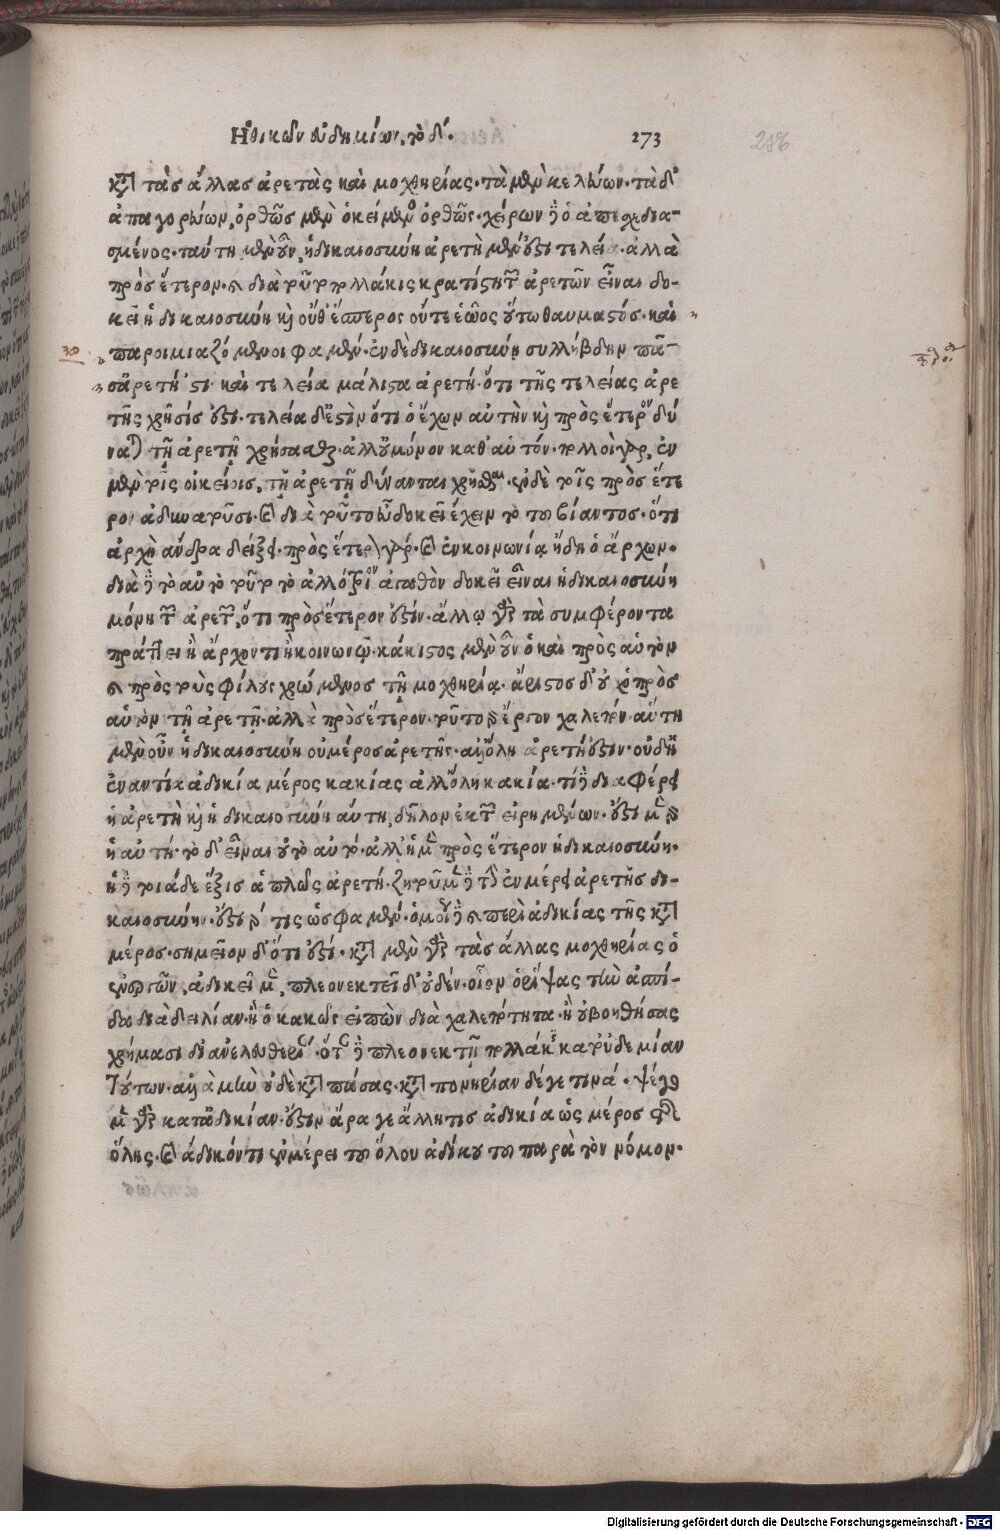 Ηθικῶν ευδημίων, τὸ δ'. 273
286
κατὰ τὰς ἄλλας ἀρετὰς καὶ μοχθηρίας· τὰ μὲν κελεύων· τὰ δ'
ἀπαγορεύων, ὀρθῶς μὲν ὁ κείμενος ὀρθῶς· χεῖρον δὲ ὁ ἀπεσχεδια-
σμένος· ταύτη μὲν οὖν ἡ δικαιοσύνη ἀρετὴ μέν ἐστι τελεία· ἀλλὰ
πρὸς ἕτερον· καὶ διὰ τοῦτο πολλάκις κρατίστη τῶν ἀρετῶν εἶναι δο-
κεῖ ἡ δικαιοσύνη καὶ οὔθ' ἕσπερος οὔτε ἑῷος οὕτω θαυμαστός· καὶ
30 παροιμιαζόμενοι φαμέν· ἐν δὲ δικαιοσύνη συλλήβδην πᾶ-
σ' ἀρετή 'στι· καὶ τελεία μάλιστα ἀρετή· ὅτι τῆς τελείας ἀρε
τῆς χρῆσίς ἐστι· τελεία δ' ἐστὶν ὅτι ὁ ἔχων αὐτὴν καὶ πρὸς ἕτερον δύ
ναται τῇ ἀρετῇ χρῆσασθαι· ἀλλ' οὐ μόνον καθ' αὑτόν· πολλοὶ γὰρ, ἐν
μὲν τοῖς οἰκείοις, τῇ ἀρετῇ δύνανται χρῆσθαι· ἐν δὲ τοῖς πρὸς ἕτε
ρον ἀδυνατοῦσι· καὶ διὰ τοῦτο εὖ δοκεῖ ἔχειν τὸ τοῦ βίαντος· ὅτι
ἀρχὴ ἄνδρα δείξει· πρὸς ἕτερον γάρ· καὶ ἐν κοινωνίᾳ ἤδη ὁ ἄρχων·
διὰ δὲ τὸ αὐτὸ τοῦτο τὸ ἀλλότριον ἀγαθὸν δοκεῖ εἶναι ἡ δικαιοσύνη
μόνη τῶν ἀρετῶν, ὅτι πρὸς ἕτερον ἐστίν· ἄλλῳ γὰρ τὰ συμφέροντα
πράττει ἢ ἄρχοντι ἢ κοινωνῷ· κάκιστος μὲν οὖν ὁ καὶ πρὸς αὑτὸν
καὶ πρὸς τοὺς φίλους χρώμενος τῇ μοχθηρίᾳ· ἄριστος δ' οὐχ ὁ πρὸς
αὑτὸν τῇ ἀρετῇ· ἀλλὰ πρὸς ἕτερον· τοῦτο γὰρ ἔργον χαλεπόν· αὕτη
μὲν οὖν ἡ δικαιοσύνη οὐ μέρος ἀρετῆς· ἀλλ' ὅλη ἀρετή ἐστιν· οὐδ' ἡ
ἐναντία ἀδικία μέρος κακίας ἀλλ' ὅλη κακία· τί δὲ διαφέρει
ἡ ἀρετὴ καὶ ἡ δικαιοσύνη αὕτη, δῆλον ἐκ τῶν εἰρημένων· ἔστι μὲν γὰρ
ἡ αὐτή· τὸ δ' εἶναι οὐ τὸ αὐτό· ἀλλ' ᾗ μὲν πρὸς ἕτερον ἡ δικαιοσύνη·
ᾗ δὲ τοιάδε ἕξις ἁπλῶς ἀρετή· ζητοῦμεν δὲ τὴν ἐν μέρει ἀρετῆς δι-
καιοσύνην· ἔστι γάρ τις ὥς φαμέν· ὁμοίως δὲ καὶ περὶ ἀδικίας τῆς κατὰ
μέρος· σημεῖον δ' ὅτι ἐστί· κατὰ μὲν γὰρ τὰς ἄλλας μοχθηρίας ὁ
ἐνεργῶν, ἀδικεῖ μὲν, πλεονεκτεῖ δ' οὐδέν· οἷον ὁ ρίψας τὴν ἀσπί-
δα διὰ δειλίαν· ἢ ὁ κακῶς εἰπὼν διὰ χαλεπότητα· ἢ οὐ βοηθήσας
χρήμασι δι' ἀνελευθερίαν· ὅταν δὲ πλεονεκτῇ πολλάκις κατ' οὐδεμίαν
τούτων· ἀλλὰ μὴν οὐδὲ κατὰ πάσας· κατὰ πονηρίαν δέ γε τινά· ψέγομεν
γὰρ κατ' ἀδικίαν· ἔστιν ἄρα γε ἄλλη τις ἀδικία ὡς μέρος τῆς
ὅλης· καὶ ἄδικόν τι ἐν μέρει τοῦ ὅλου ἀδίκου τοῦ παρὰ τὸν νόμον·
Digitalisierung gefördert durch die Deutsche Forschungsgemeinschaft - DFG